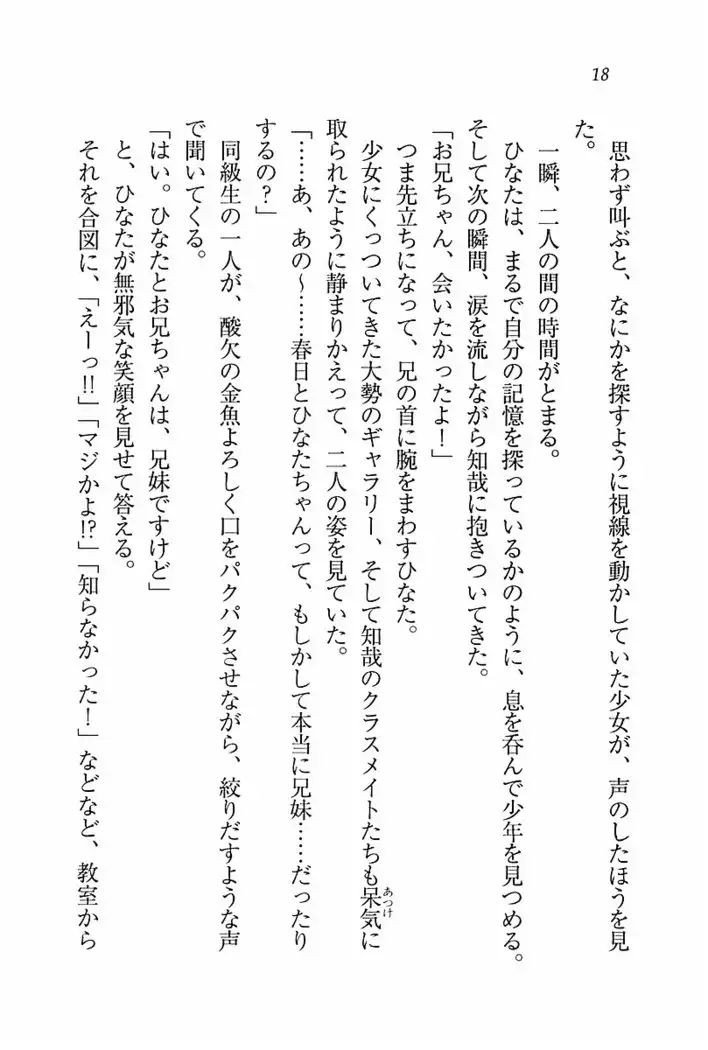 18
思わず叫ぶと、なにかを探すように視線を動かしていた少女が、声のしたほうを見
た。
一瞬、二人の間の時間がとまる。
ひなたは、まるで自分の記憶を探っているかのように、息を呑んで少年を見つめる。
そして次の瞬間、涙を流しながら知哉に抱きついてきた。
「お兄ちゃん、会いたかったよ！」
つま先立ちになって、兄の首に腕をまわすひなた。
少女にくっついてきた大勢のギャラリー、そして知哉のクラスメイトたちも呆気に
あっけ
取られたように静まりかえって、二人の姿を見ていた。
「……あ、あの〜……春日とひなたちゃんって、もしかして本当に兄妹……だったり
するの？」
同級生の一人が、酸欠の金魚よろしく口をパクパクさせながら、絞りだすような声
で聞いてくる。
「はい。ひなたとお兄ちゃんは、兄妹ですけど」
と、ひなたが無邪気な笑顔を見せて答える。
それを合図に、「えーっ!!」「マジかよ!?」「知らなかった！」などなど、教室から